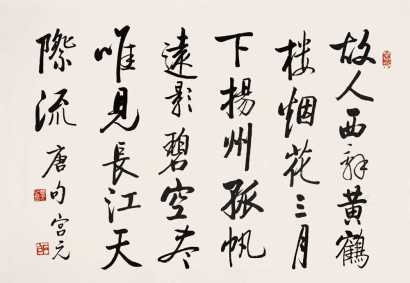 故人西辞黄鹤
楼烟花三月
下揚州孤帆
遠影碧空尽
唯見長江天
際流
唐句宫元